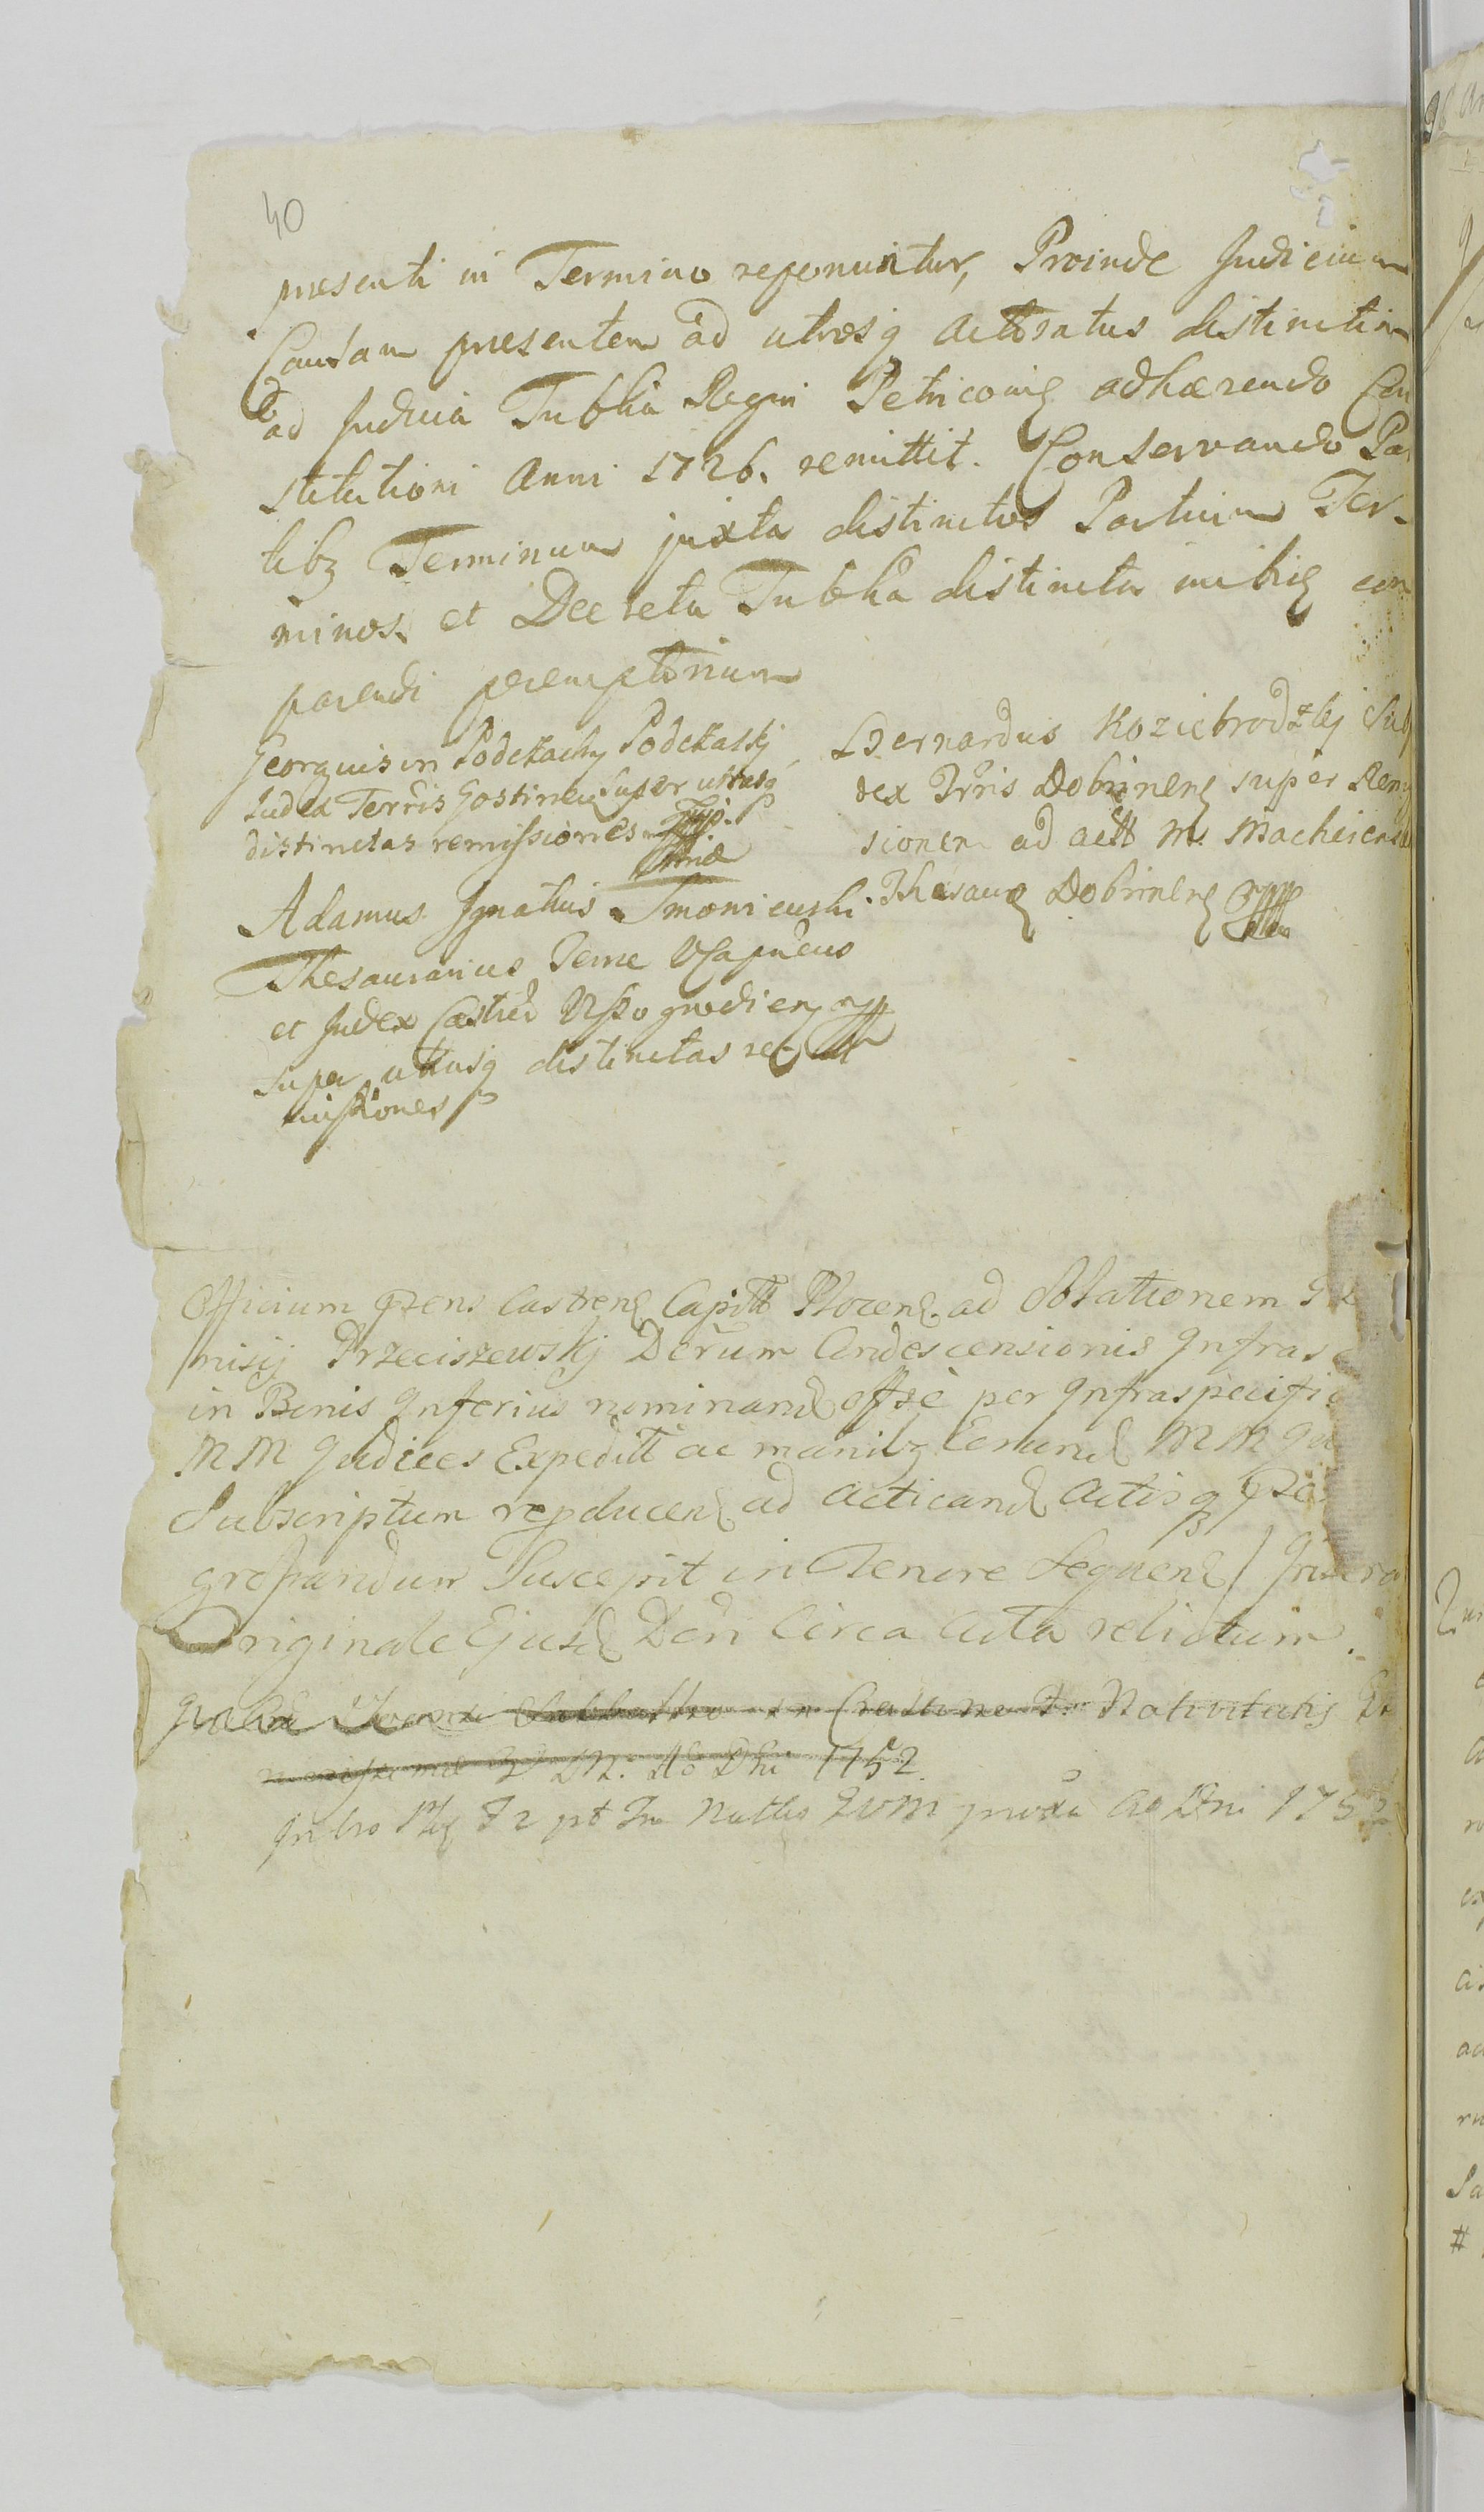 40
presenti in Termino reponuntur, Proinde Judicium
Causam presentem ad utrosq actoratus distinctim
ad Judicia Tribła Regni Petricovię adhærendo Con
stitutioni Anni 1726. remittit. Conservando Par
tibz Terminum juxta distinctos Partium Ter-
minos. et Decreta Tribła distincta inibię com
parendi peremptorium
Georgius in Podczachy Podczaskj
Judex Terris Gostineņ Super utrasq
distinctas remissiones
Adamus Ignatius
Thesaurarius Terræ
et Judex Castreņ Wyszogrodieņ
super utrasq distinctas re-
missiones
Bernardus Koziebrodzkj Sub
dex Trris Dobrineņ super Remis
sionem ad actt M. Macheiensi
Thesaurę Dobrineņ
Officium Pzens Castrenę Capittł Płocenę. ad Oblationem
Przeciszewskj Decrum Condescensionis Infras
in Bonis Inferius nominandę offse per Infraspecific
MM Judices Expeditt ac manibz Eorundę MM Ju
Subscriptum repducenę ad acticandę Actisq Pze
grossandum Suscepit in Tenore Sequenę
Originale Ejusdę Decri Circa Acta relictum.
in Crastino Nativitatis
M. Ao Dni 1752
pt Tn Nattis BVM proxa Ao Dni 1752